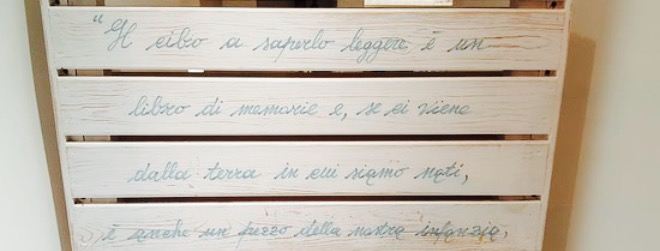 "Il cibo a saperlo leggere è un
libro di memorie e, se ci viene
dalla terra in cui siamo nati,
è anche un pezzo della nostra infanzia,